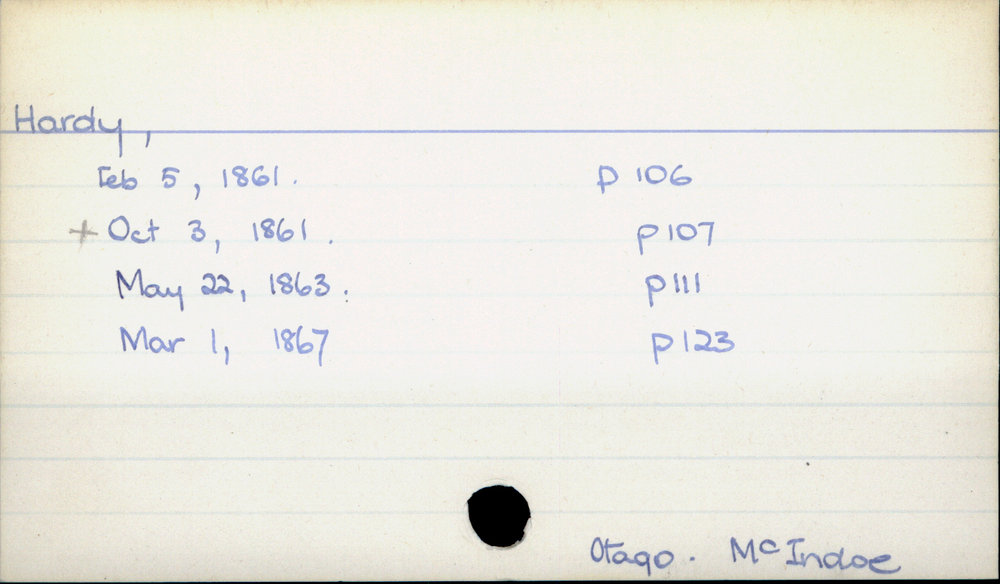 Hardy,
Feb 5, 1861. p 106
+ Oct 3, 1861. p 107
May 22, 1863. p 111
Mar 1, 1867 p 123
Otago. McIndoe